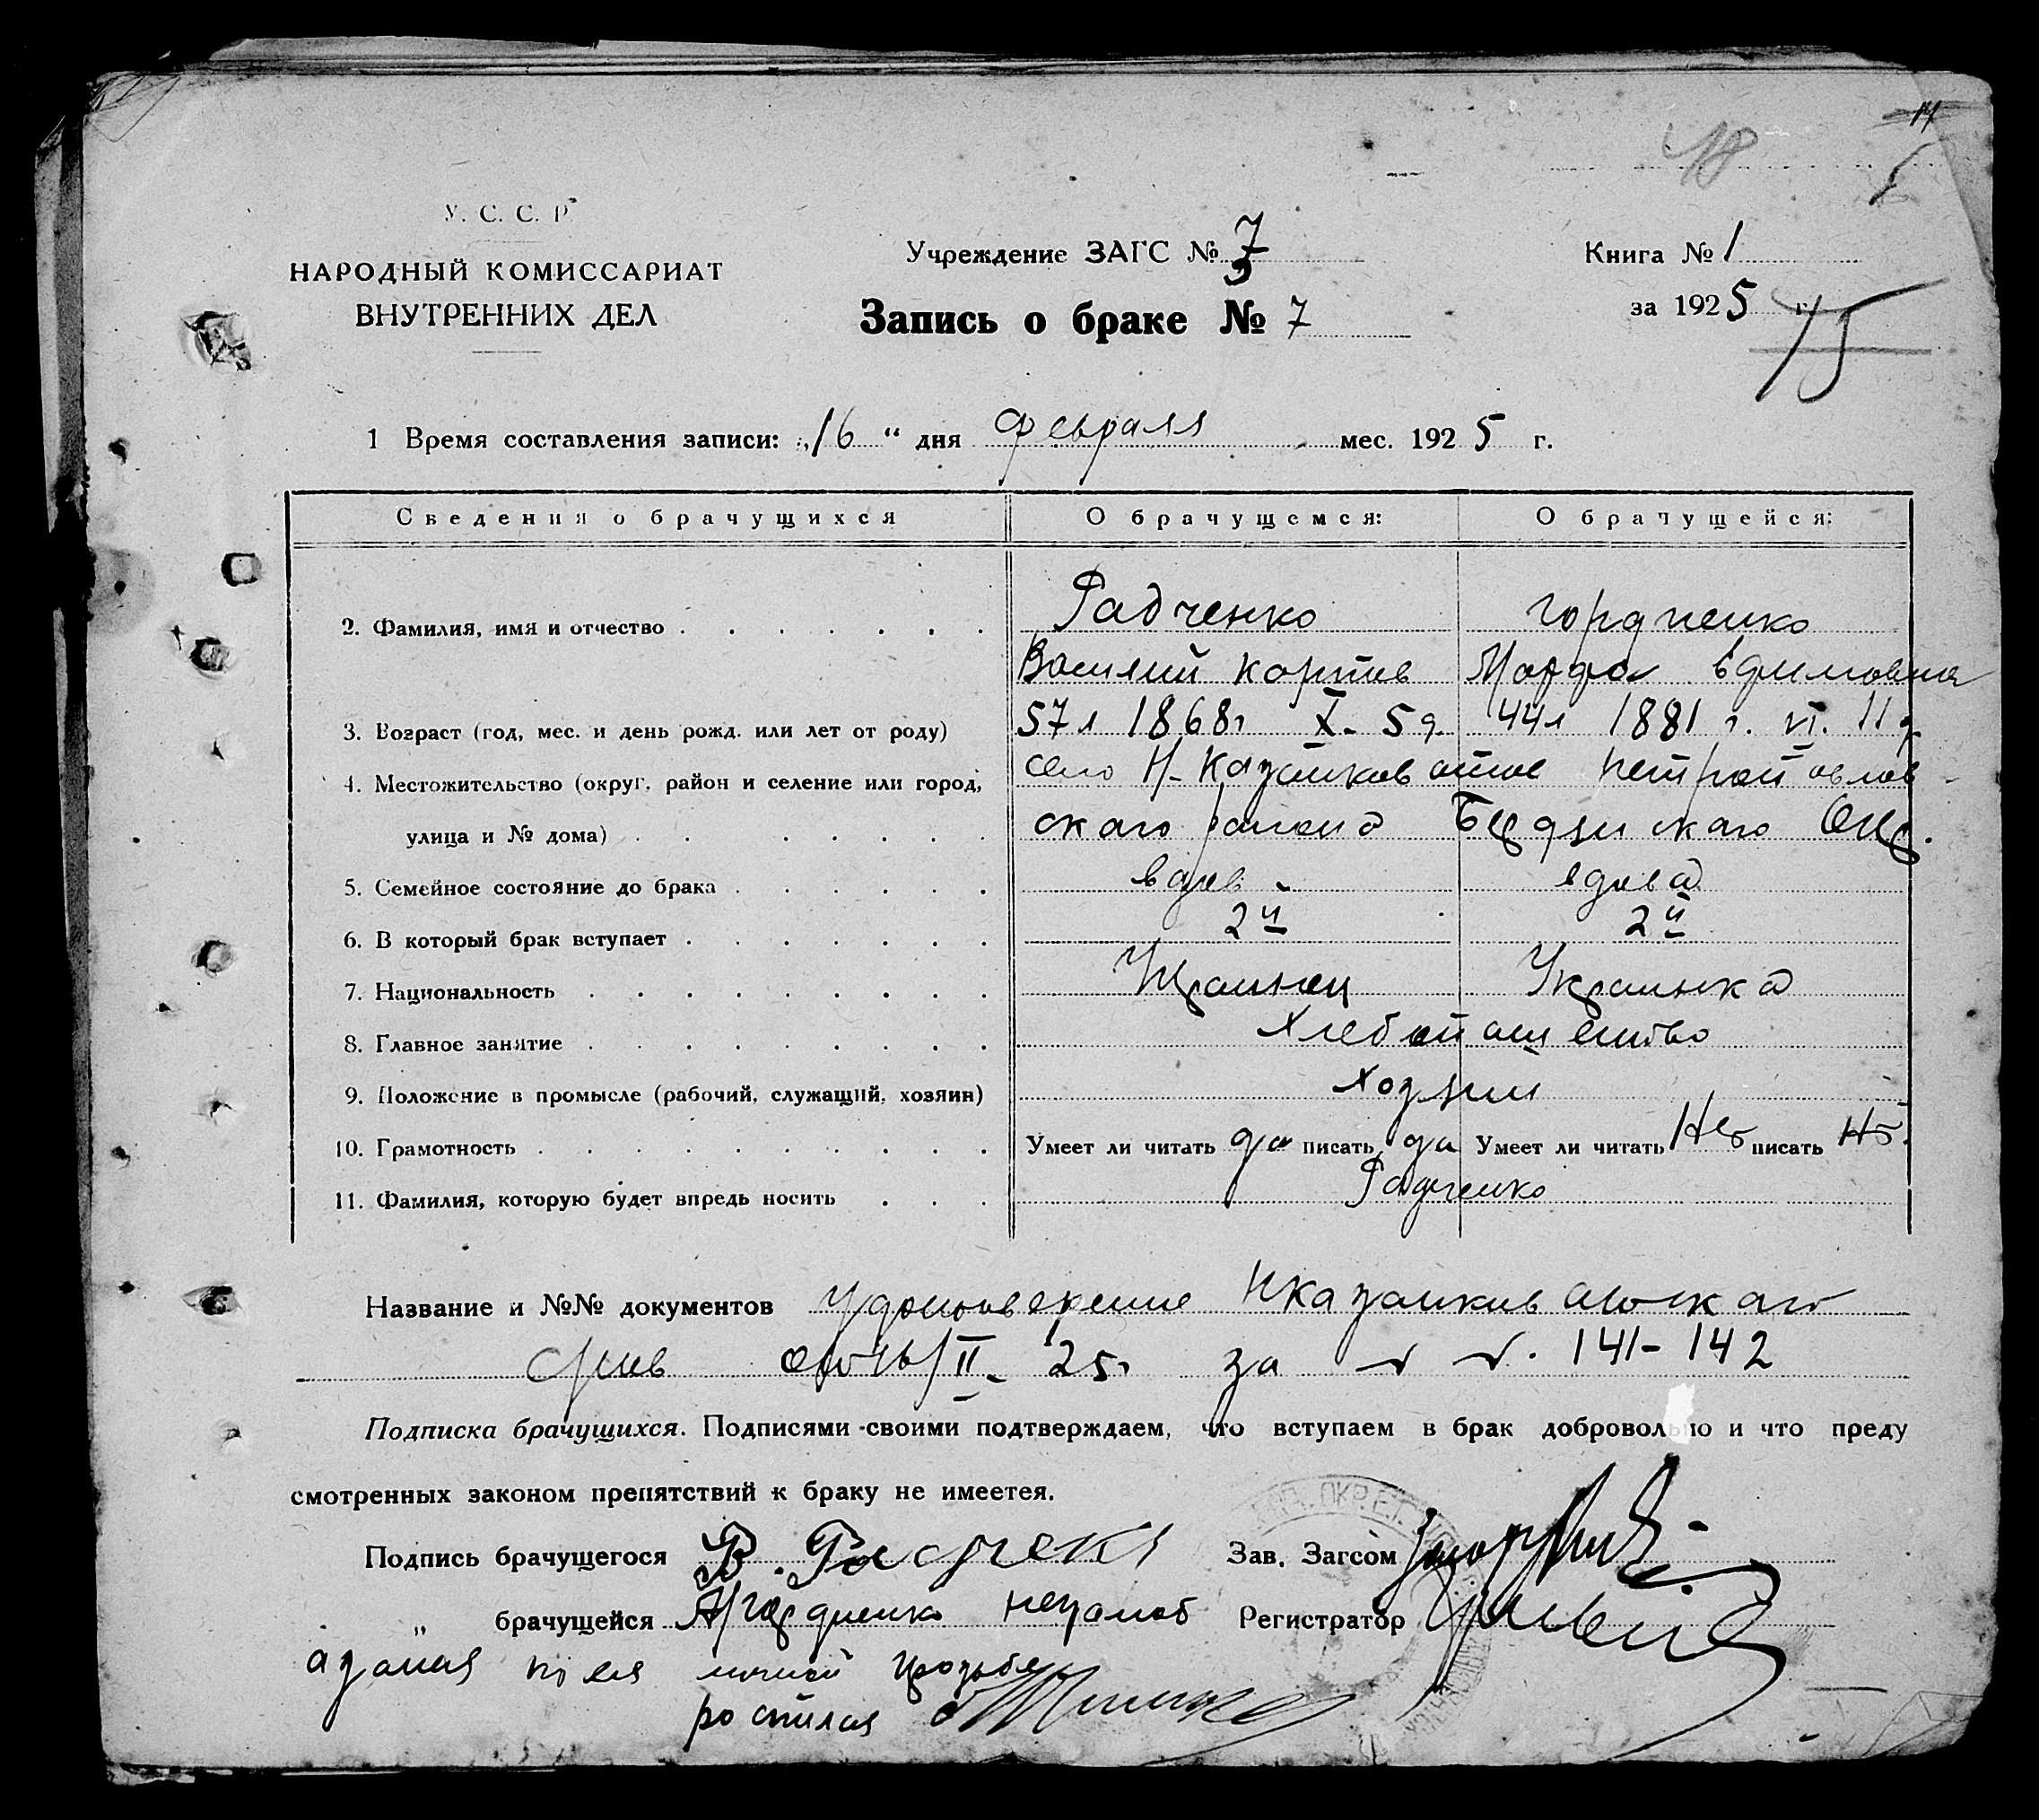 18
У. С. С. Р.
НАРОДНЫЙ КОМИССАРИАТ
ВНУТРЕННИХ ДЕЛ
Учреждение ЗАГС № 7
Запись о браке № 7
Книга № 1
за 1925 г.
15
1 Время составления записи: „16“ дня февраля мес. 1925 г.
Сведения о брачущихся О брачущемся: О брачущейся:
2. Фамилия, имя и отчество Радченко Гордиенко
Василий Карпов Марфа Ефимовна
3. Возраст (год, мес. и день рожд. или лет от роду) 57 л 1868 г X. 5 д. 44 л 1881 г. VI. 11 д.
4. Местожительство (округ, район и селение или город, село Н-Казанковатое Петропавлов-
улица и № дома) скаго района Бердянскаго Окр.
5. Семейное состояние до брака вдов. вдова
6. В который брак вступает 2й 2й
7. Национальность Украинец Украинка
8. Главное занятие Хлебопашество
9. Положение в промысле (рабочий, служащий, хозяин) хозяин
10. Грамотность Умеет ли читать да писать да Умеет ли читать Нет писать Нт.
11. Фамилия, которую будет впредь носить Радченко
Название и №№ документов Удостоверение НКазанковатскаго
II 25 г за 141-142
Подписка брачущихся. Подписями своими подтверждаем, что вступаем в брак добровольно и что преду
смотренных законом препятствий к браку не имеетея.
Подпись брачущегося В. Радчекo Зав. Загсом
„ брачущейся Гордиенко неграмот Регистратор
а за нея по ея личной прозьбе
роспился